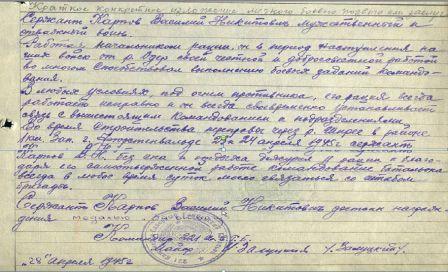 Краткое конкретное изложение личного боевого подвига или заслуг
Сержант Карпов Василий Никитович мужественный и
отважный воин.
Работая начальником рации, он в период наступления на-
ших войск от р. Одер своей честной и добросовестной работой
во многом способствовал выполнению боевых заданий командо-
вания.
В любых условиях, под огнем противника, его рация всегда
работает исправно и он всегда своевременно устанавливает
связь с вышестоящим командованием и подразделениями.
Во время строительства переправы через р. Шпрее в районе
24 апреля 1945г сержант
Карпов В.Н. без сна и отдыха дежурил у рации и благо-
даря его самоотверженной работе командование батальона
всегда в любое время суток могло связаться со штабом
бригады.
Сержант Карпов Василий Никитович достоин награж-
дения медалью
Командир
Майор
"28" апреля 1945г